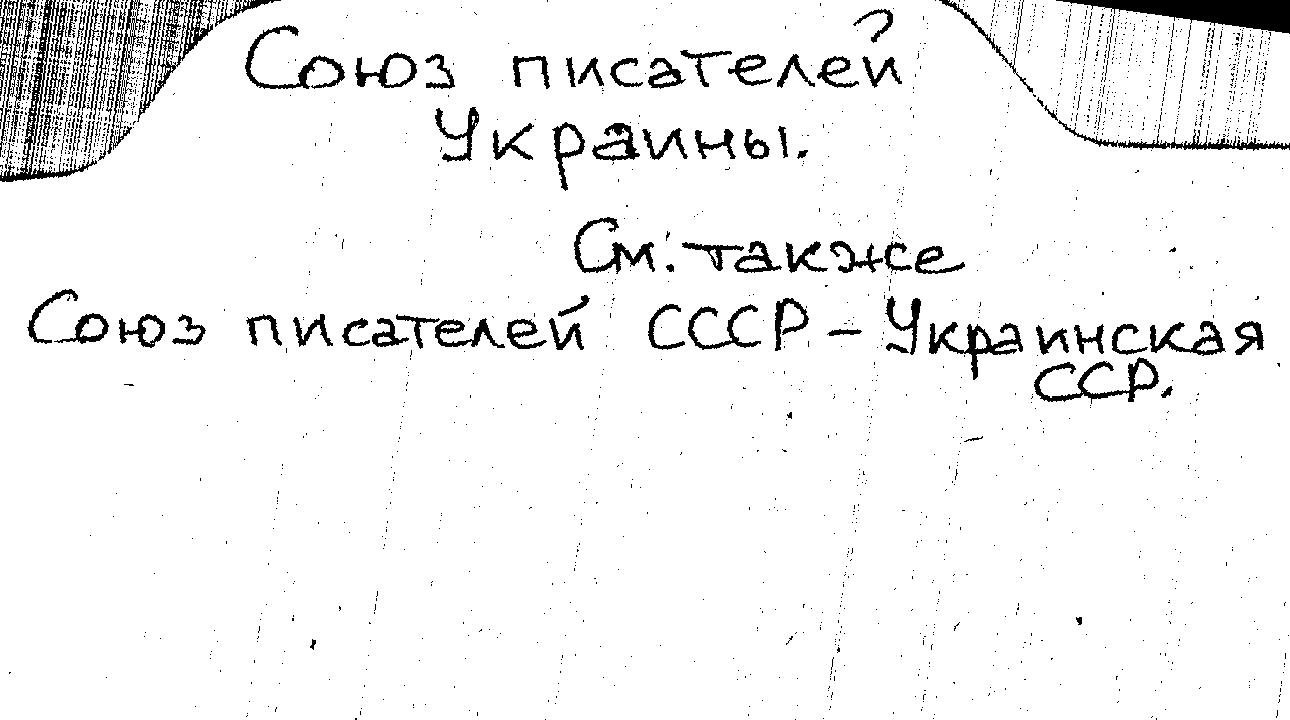 Союз писателей
Украины.
См. также
Союз писателей СССР – Украинская
ССР.